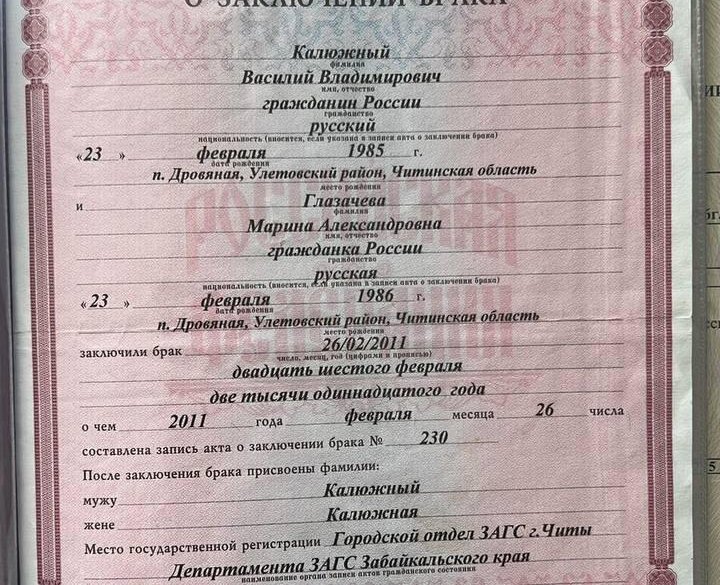 О ЗАКЛЮЧЕНИИ БРАКА
Калюжный
фамилия
Василий Владимирович
имя, отчество
гражданин России
гражданство
русский
национальность (вносится, если указана в записи акта о заключении брака)
«23 » февраля 1985 г.
дата рождения
п. Дровяная, Улетовский район, Читинская область
место рождения
и Глазачева
фамилия
Марина Александровна
имя, отчество
гражданка России
гражданство
русская
национальность (вносится, если указана в записи акта о заключении брака)
«23 » февраля 1986 г.
дата рождения
п. Дровяная, Улетовский район, Читинская область
место рождения
заключили брак 26/02/2011
число, месяц, год (цифрами и прописью)
двадцать шестого февраля
две тысячи одиннадцатого года
о чем 2011 года февраля месяца 26 числа
составлена запись акта о заключении брака № 230
После заключения брака присвоены фамилии:
мужу Калюжный
жене Калюжная
Место государственной регистрации Городской отдел ЗАГС г.Читы
Департамента ЗАГС Забайкальского края
наименование органа записи актов гражданского состояния